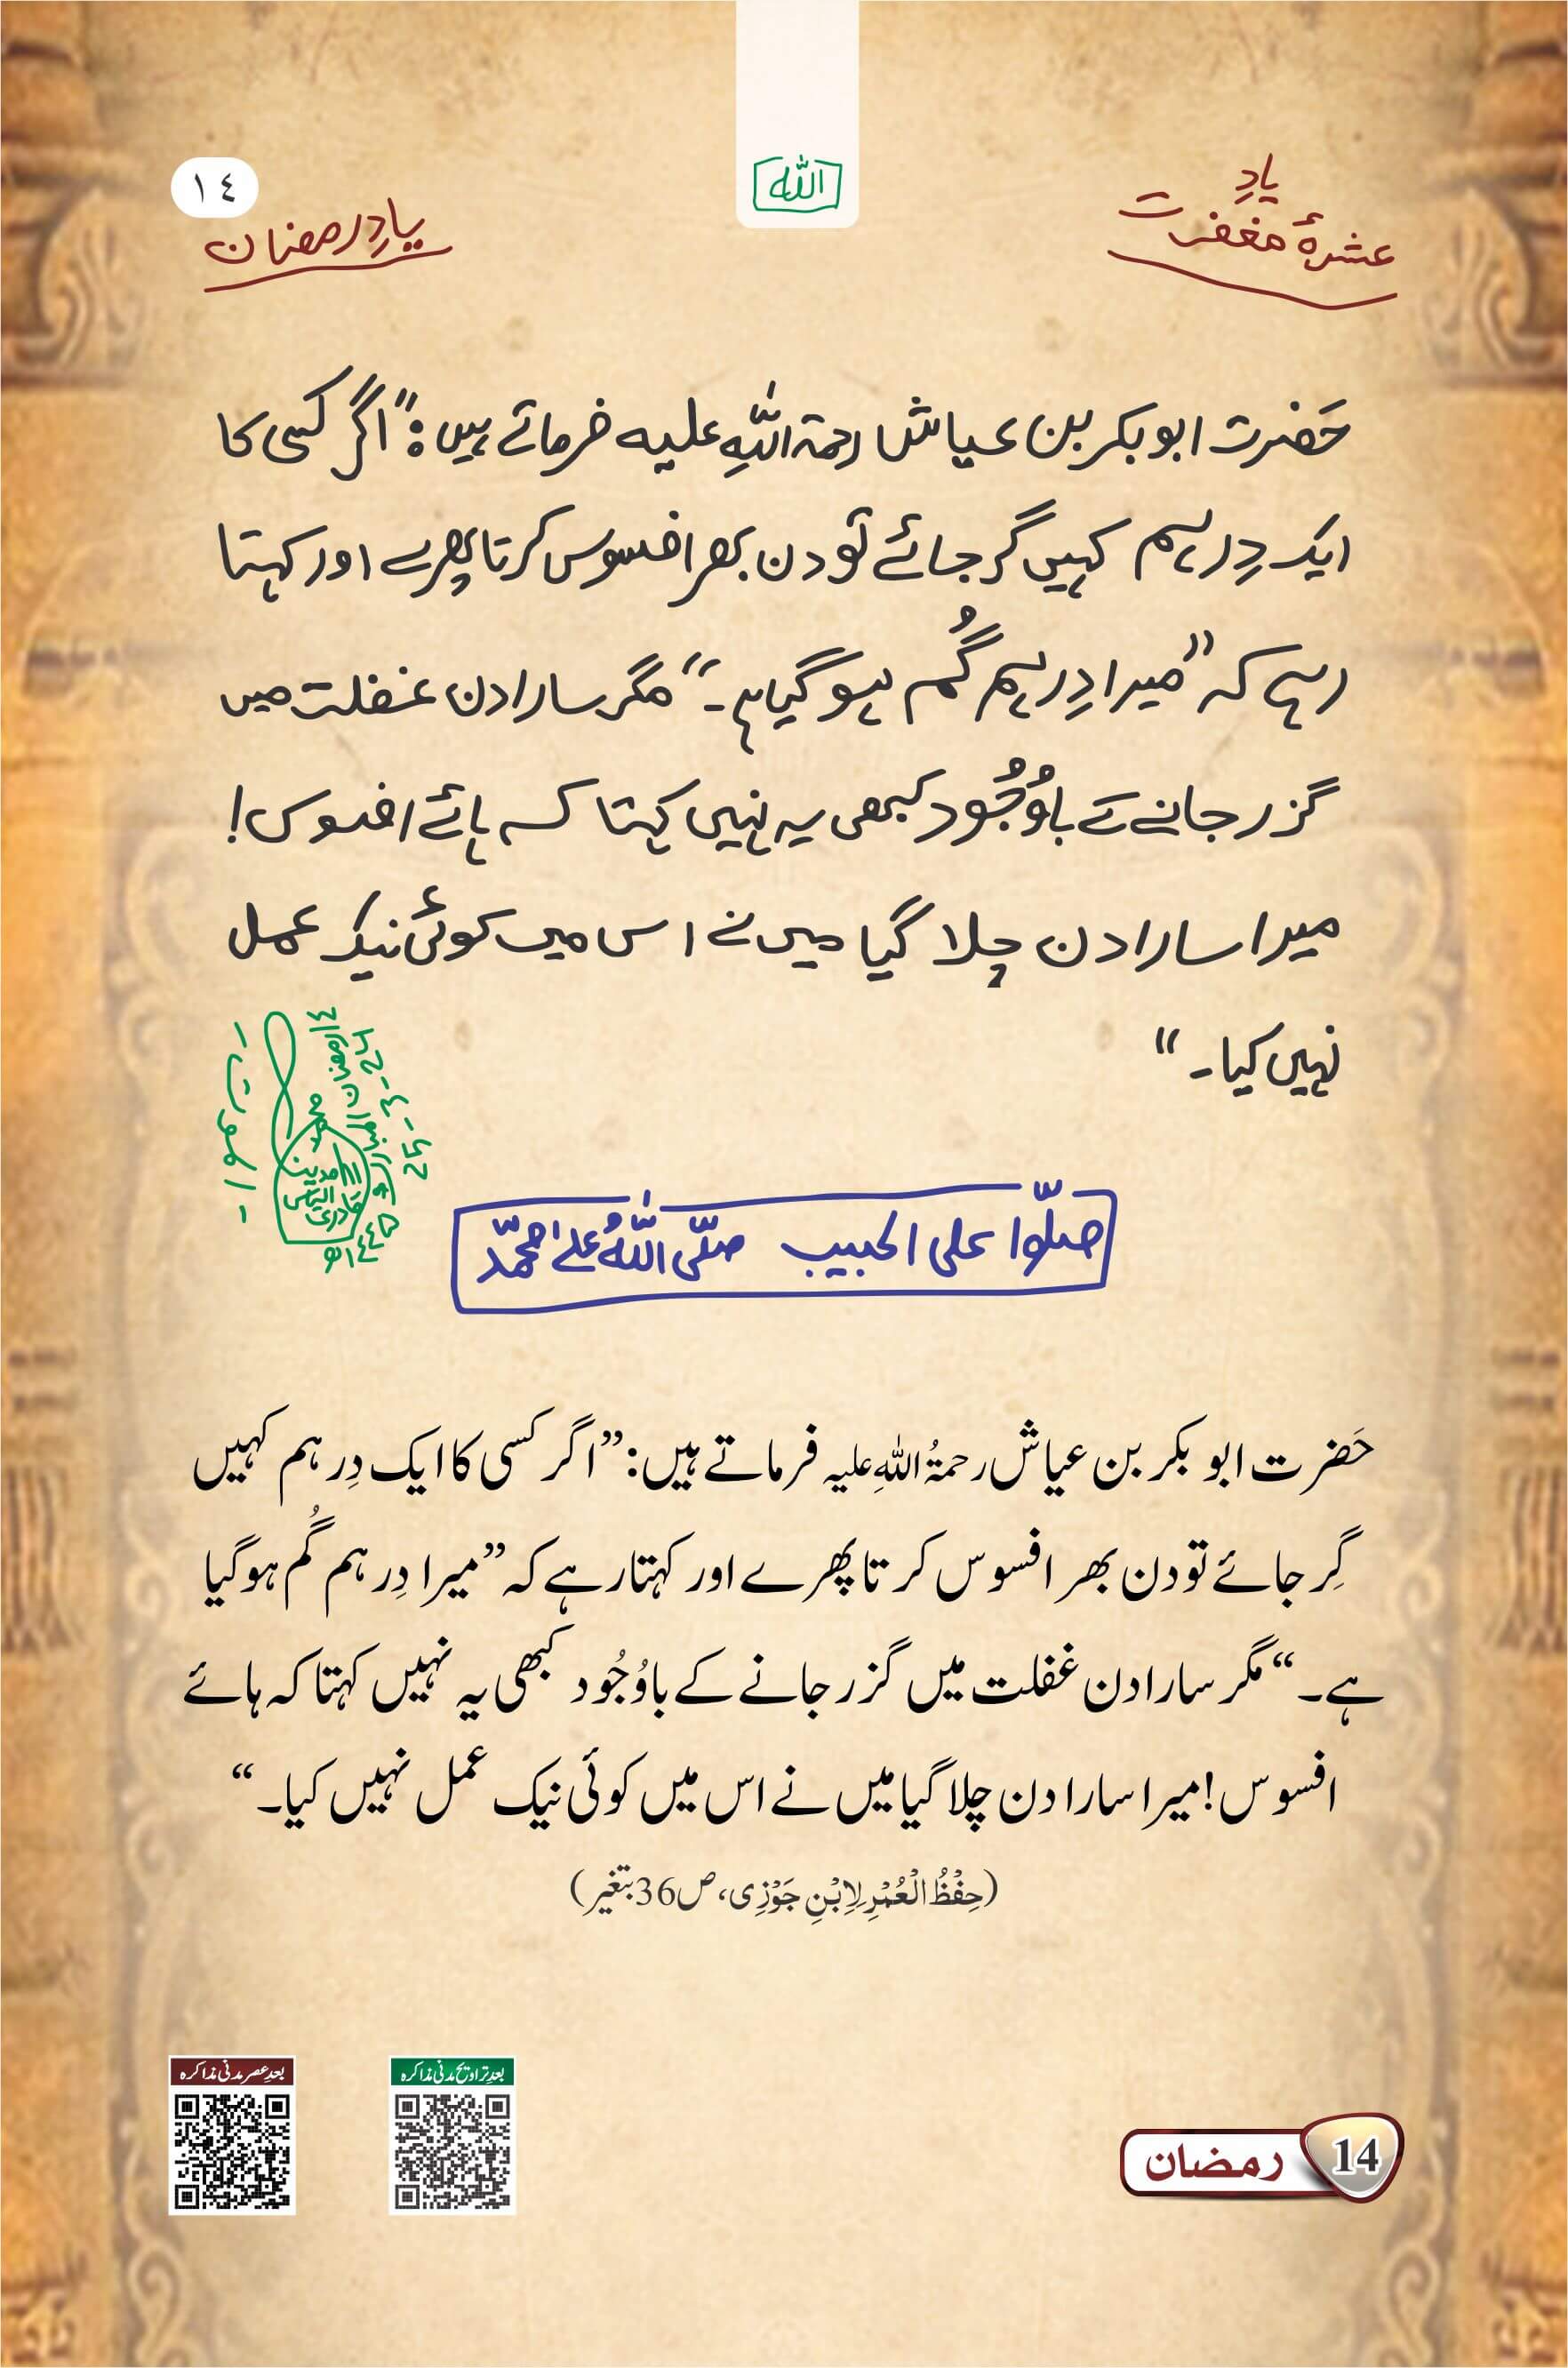 الله
١٤
یادِ
عشرۂ مغفرت
یادِ رمضان
حَضرت ابو بکر بن عیاش رحمۃ اللہِ علیہ فرماتے ہیں: ”اگر کسی کا
ایک دِرہم کہیں گر جائے تو دن بھر افسوس کرتا پھرے اور کہتا
رہے کہ ”میرا دِرہم گُم ہو گیا ہے۔“ مگر سارا دن غفلت میں
گزر جانے کے باوُجُود کبھی یہ نہیں کہتا کہ ہائے افسوس!
میرا سارا دن چلا گیا میں نے اس میں کوئی نیک عمل
نہیں کیا۔“
١٤ رمضان المبارک ١٤٤٥ھ
25-3-24
محمد الیاس قادری
صلّوا علی الحبیب صلّی اللہُ علیٰ محمّد
حَضرت ابو بکر بن عیاش رحمۃُ اللہِ علیہ فرماتے ہیں: ”اگر کسی کا ایک دِرہم کہیں
گِر جائے تو دن بھر افسوس کرتا پھرے اور کہتا رہے کہ ”میرا دِرہم گُم ہوگیا
ہے۔“ مگر سارا دن غفلت میں گزر جانے کے باوُجُود کبھی یہ نہیں کہتا کہ ہائے
افسوس! میرا سارا دن چلا گیا میں نے اس میں کوئی نیک عمل نہیں کیا۔“
(حِفْظُ الْعُمْرِ لِاِبْنِ جَوْزِی، ص36 بتغیر)
بعدِ تراویح مدنی مذاکرہ
بعدِ عصر مدنی مذاکرہ
14 رمضان